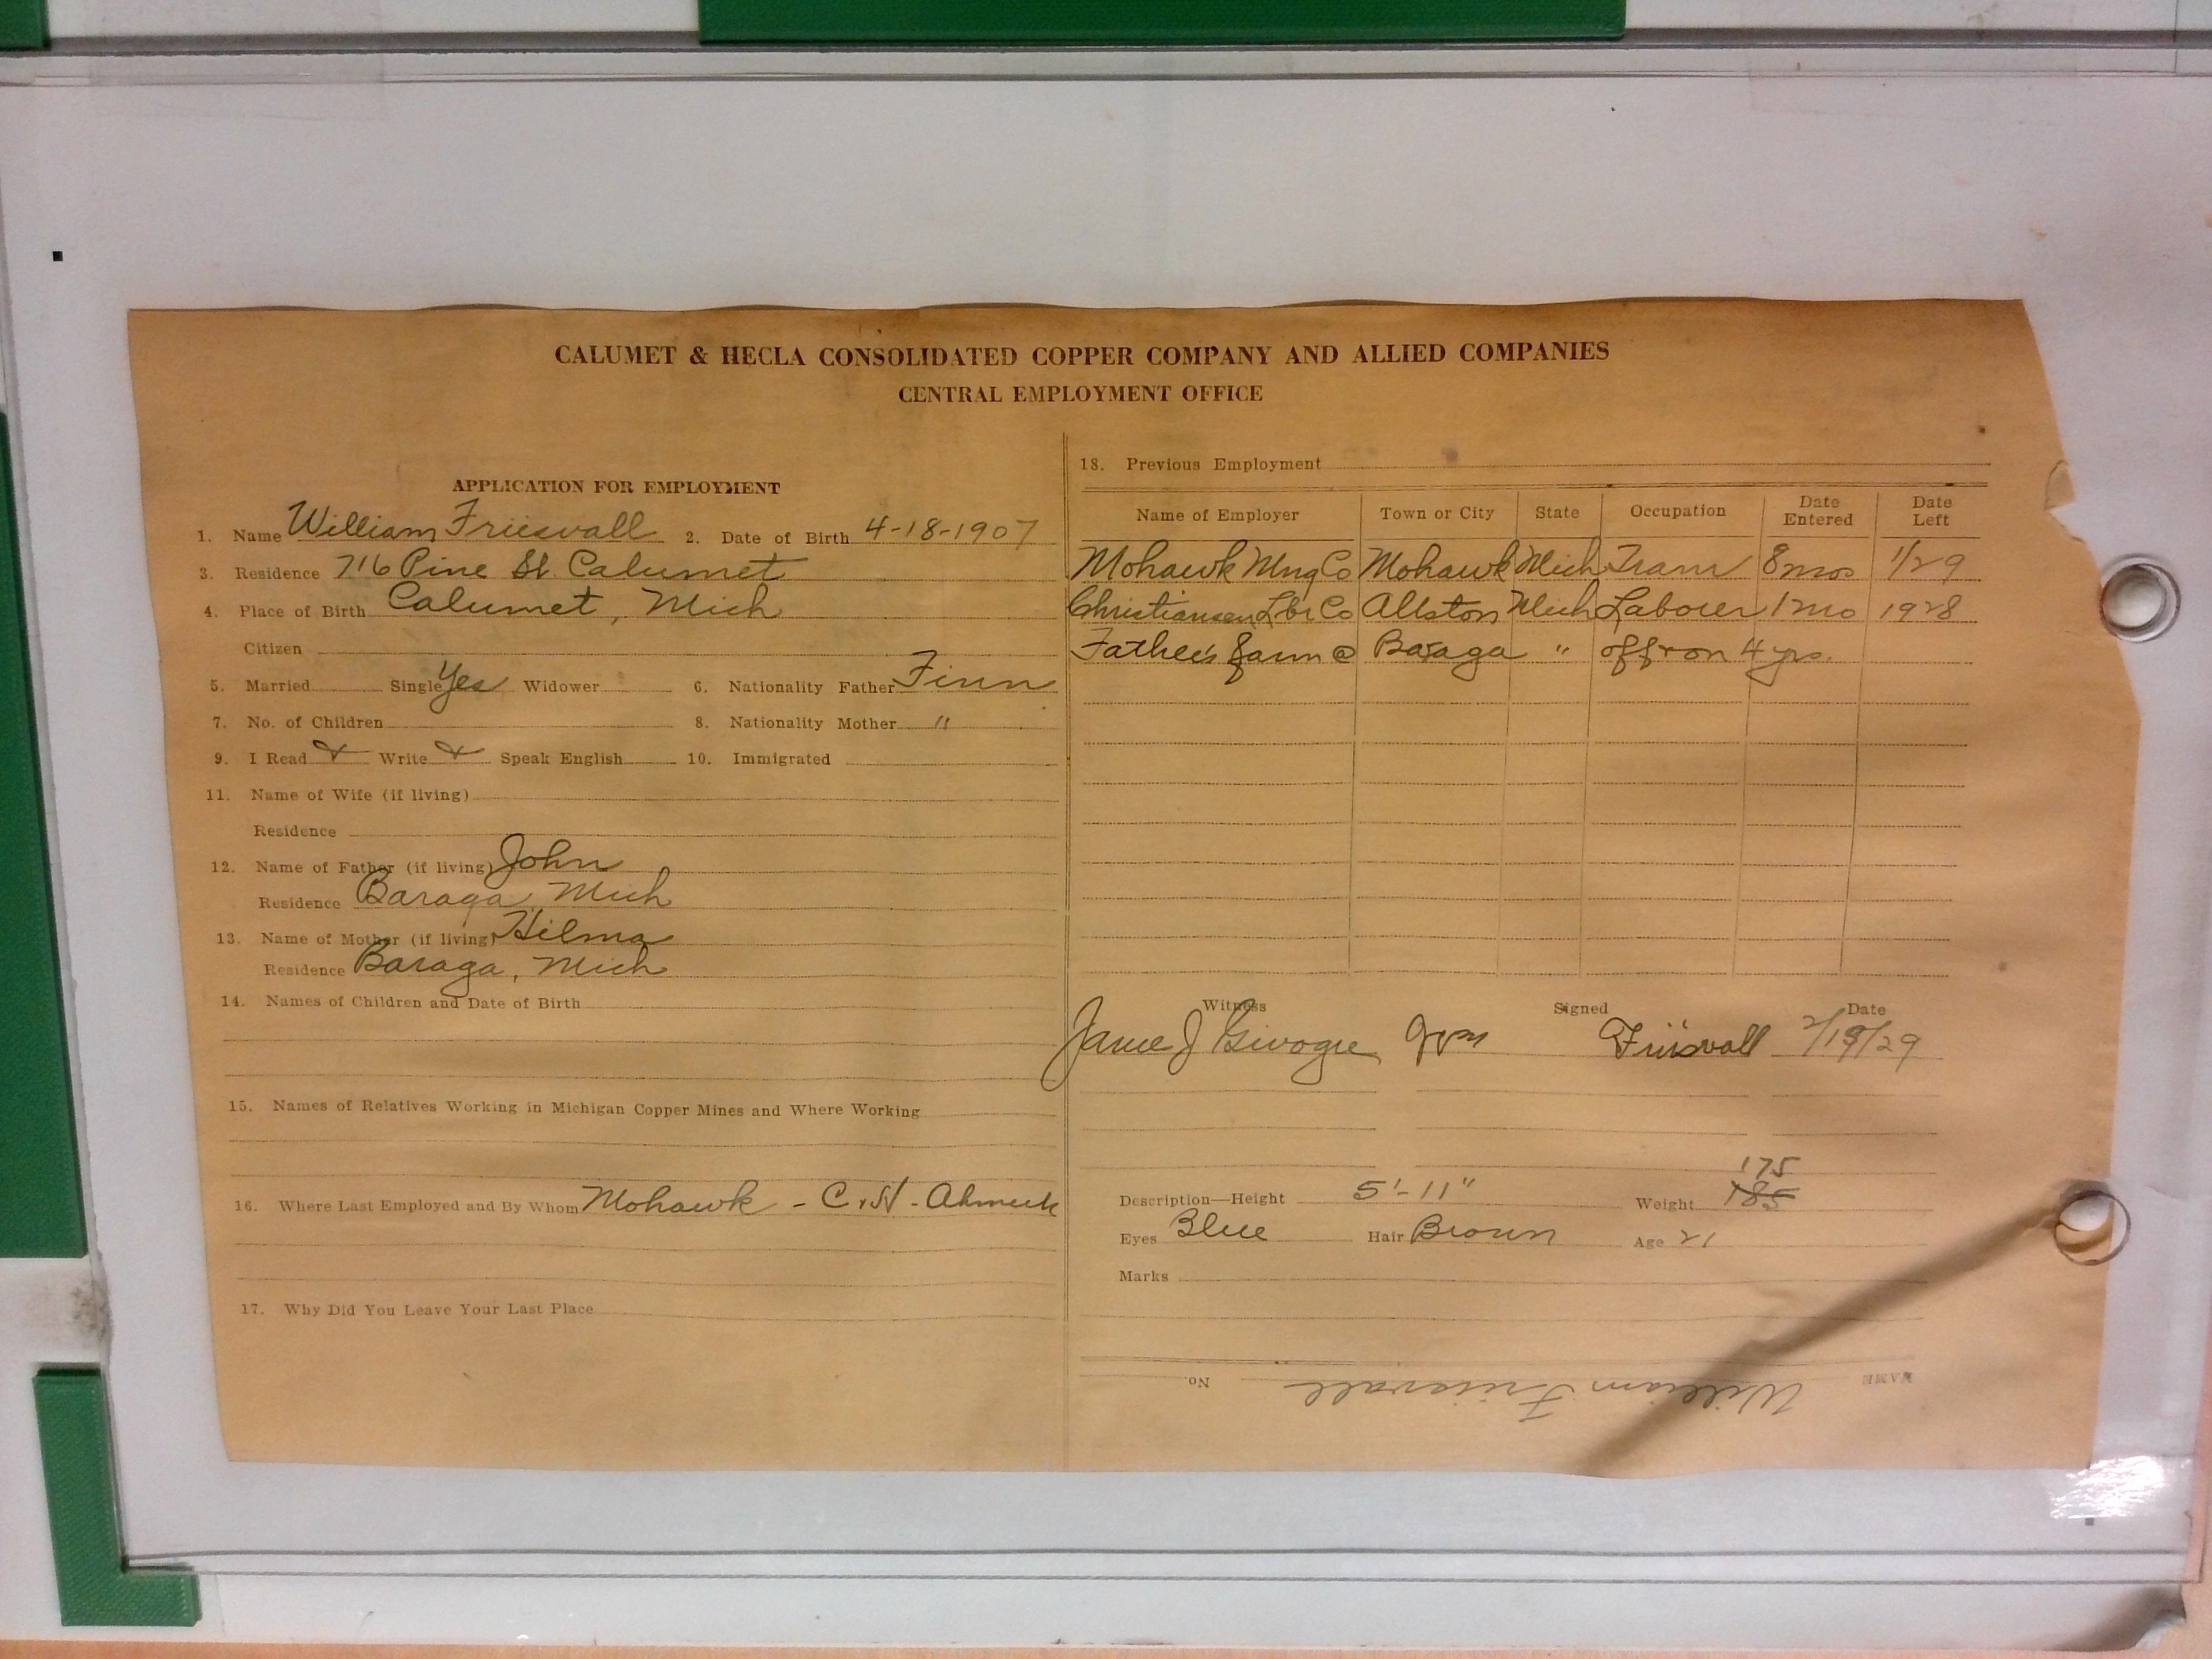 CALUMET & HECLA CONSOLIDATED COPPER COMPANY AND ALLIED COMPANIES
CENTRAL EMPLOYMENT OFFICE
APPLICATION FOR EMPLOYMENT
1. Name William Friisvall 2. Date of Birth 4-18-1907
3. Residence 716 Pine St. Calumet
4. Place of Birth Calumet, Mich
Citizen
5. Married Single Yes Widower 6. Nationality Father Finn
7. No. of Children 8. Nationality Mother "
9. I Read Write Speak English 10. Immigrated
11. Name of Wife (if living)
Residence
12. Name of Father (if living) John
Residence Baraga, Mich
13. Name of Mother (if living) Hilma
Residence Baraga, Mich
14. Names of Children and Date of Birth
15. Names of Relatives Working in Michigan Copper Mines and Where Working
16. Where Last Employed and By Whom Mohawk - C & H - Ahmeek
17. Why Did You Leave Your Last Place
18. Previous Employment
Name of Employer Town or City State Occupation Date Entered Date Left
Mohawk Mng Co Mohawk Mich Tram 8 mos 1/29
Christiansen Lbr Co Allston Mich Laborer 1 mo 1928
Father's farm @ Baraga " off + on 4 yrs.
Witness Signed Date
J Wm Friisvall 2/19/29
175
Description—Height 5'-11" Weight 185
Eyes Blue Hair Brown Age 21
Marks
NAME William Friisvall No.